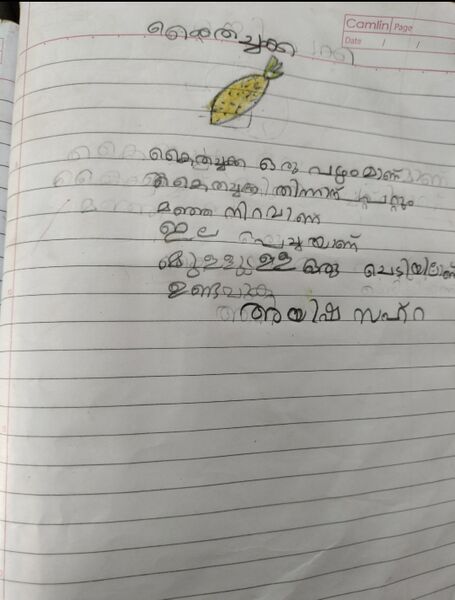 കൈതച്ചക്ക
Camlin Page
Date / /
കൈതച്ചക്ക ഒരു പഴംമാണ്
കൈതച്ചക്ക തിന്നാൻ പറ്റും
മഞ്ഞ നിറവാണ്
ഇല പച്ചയാണ്
മുള്ളുള്ള ഒരു ചെടിയിലാണ്
ഉണ്ടവുക
അയിഷ സഫ്റ